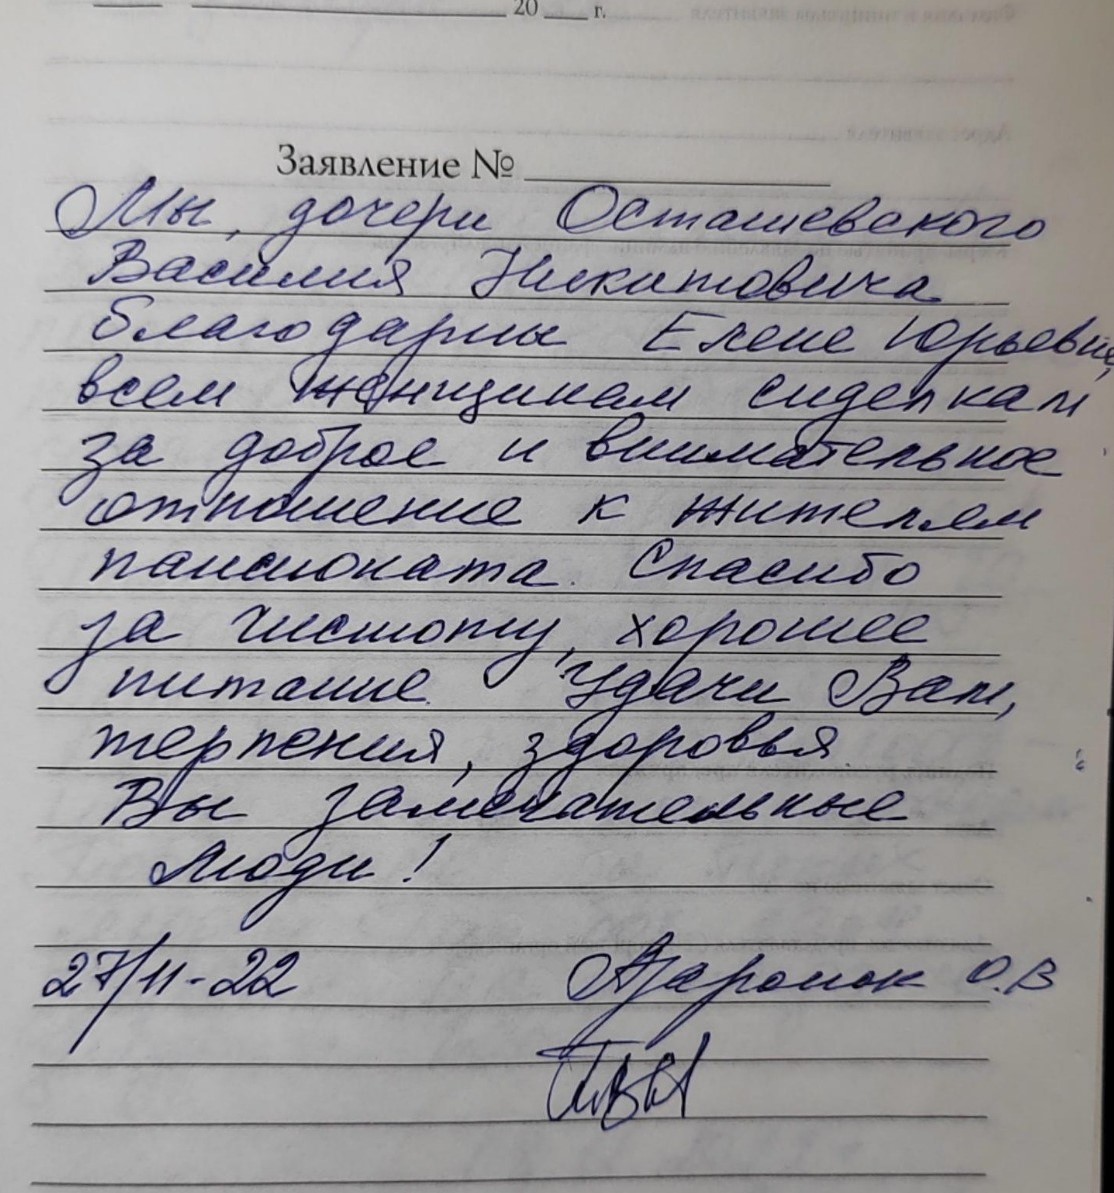 20 г.
Заявление №
Мы, дочери Осташевского
Василия Никитовича
благодарны Елене Юрьевне,
всем женщинам сиделкам
за доброе и внимательное
отношение к жителям
пансионата. Спасибо
за чистоту, хорошее
питание. Удачи Вам,
терпения, здоровья.
Вы замечательные
люди!
27/11-22 О.В